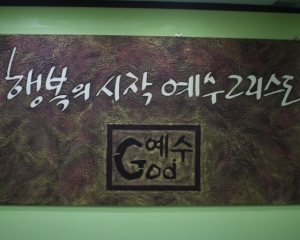 행복의 시작 예수 그리스도
예수
God